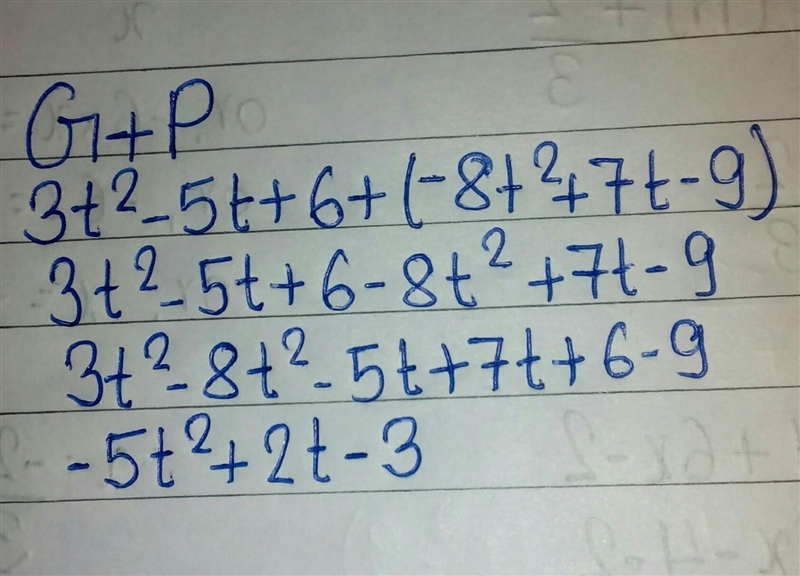 G+P
3t²-5t+6+(-8t²+7t-9)
3t²-5t+6-8t²+7t-9
3t²-8t²-5t+7t+6-9
-5t²+2t-3